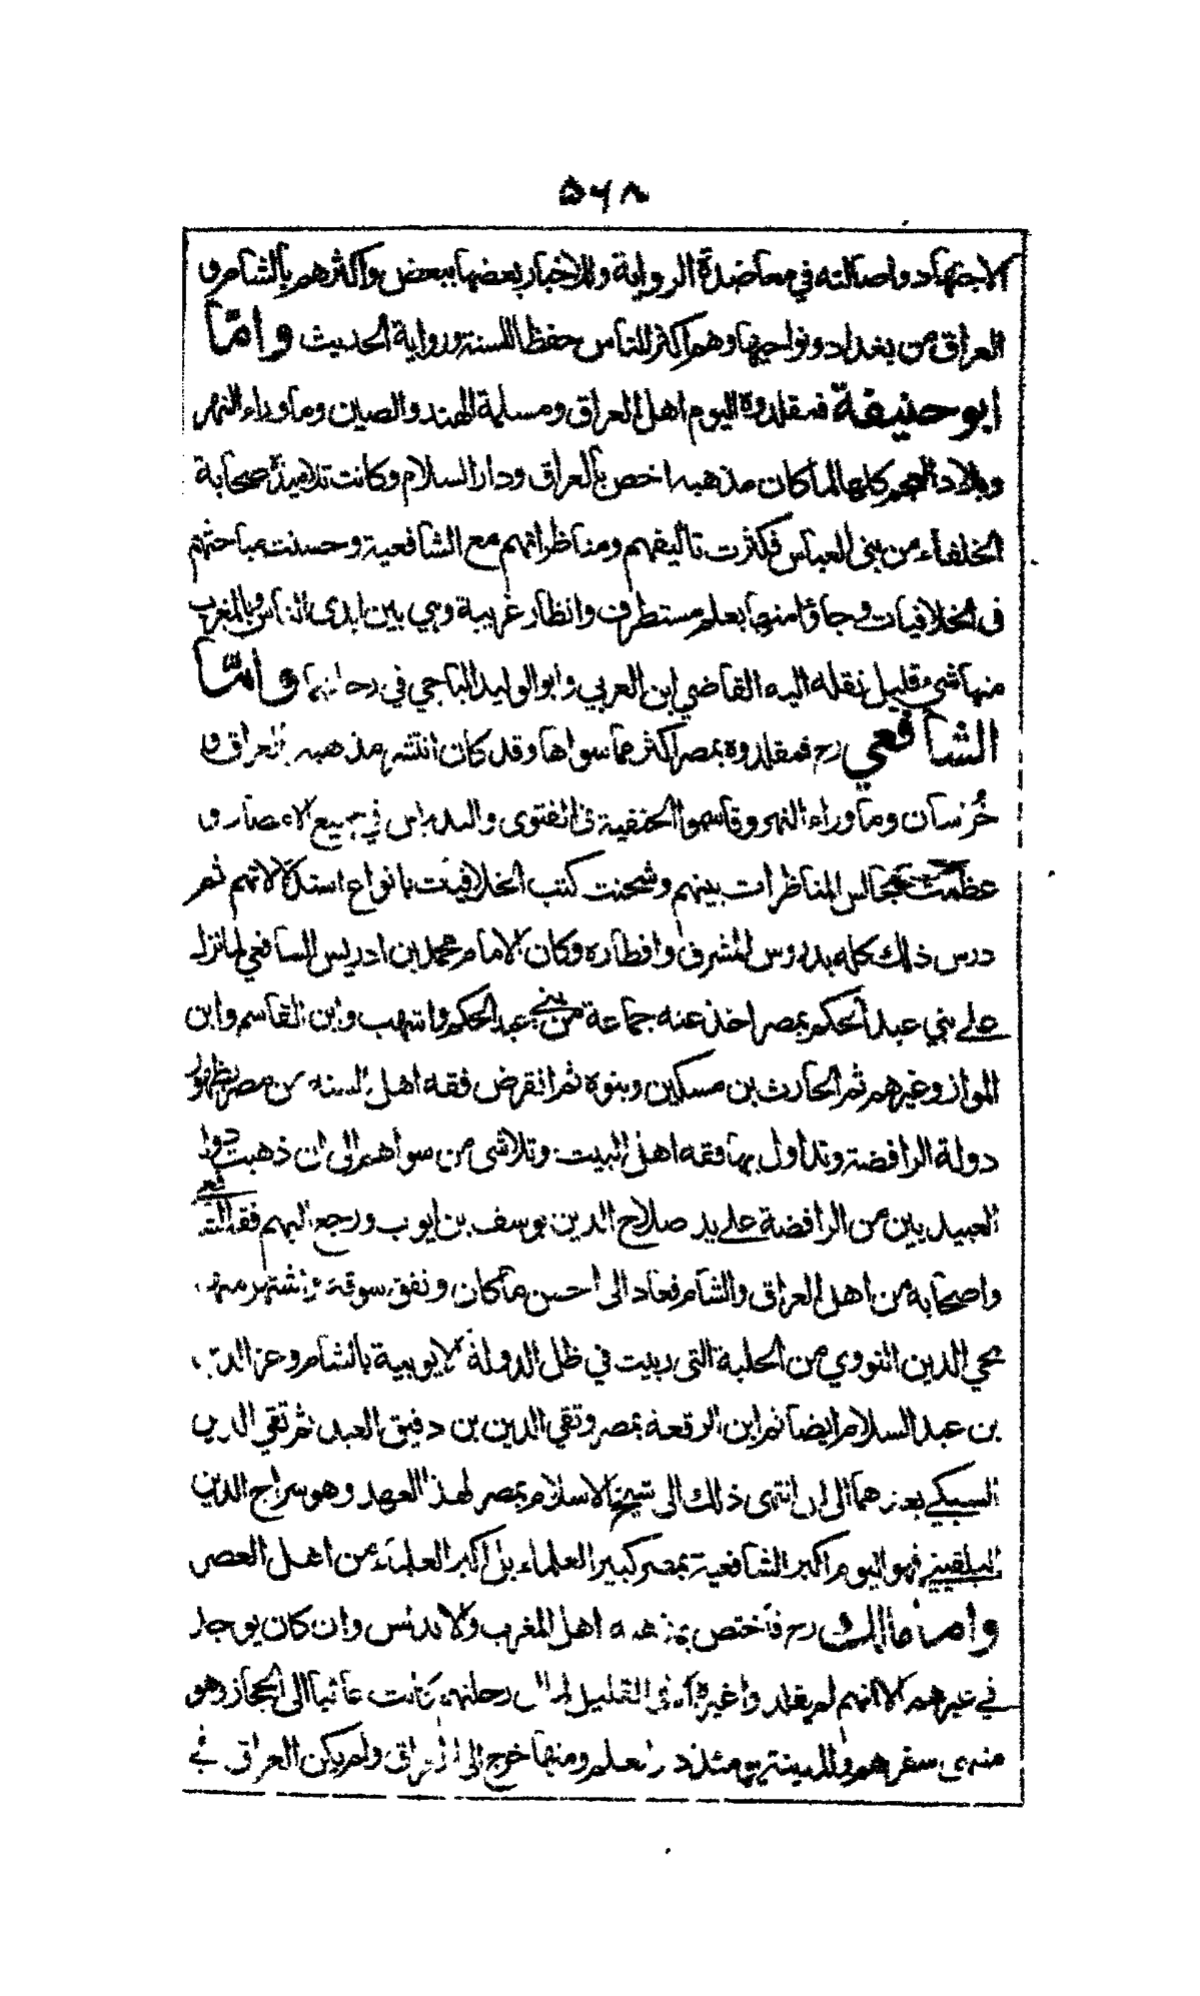 ۵۶۸
الاجتهاد واصالته في معاضدة الرواية وللاخبار بعضها ببعض واكثرهم بالشام و
العراق من بغداد ونواحيها وهم اكثر الناس حفظا للسنة ورواية الحديث وامّا
ابو حنيفة فمقلدوه اليوم اهل العراق ومسلمة الهند والصين وما وراء النهر
وبلاد العجم كلها لما كان مذهبه اخص بالعراق ودار السلام وكانت تلاميذه صحابة
الخلفاء من بني العباس فكثرت تاليفهم ومناظراتهم مع الشافعية وحسنت مباحثهم
في الخلافيات وجاؤا منها بعلم مستطرف وانظار غريبة وهي بين ايدى الناس وبالمغرب
منها شيء قليل نقله اليه القاضي ابن العربي وابو الوليد الباجي في رحلتهما وامّا
الشافعي رح فمقلدوه بمصر اكثر مما سواها وقد كان انتشر مذهبه بالعراق و
خُرسان وما وراء النهر وقاسموا الحنفية في الفتوى والتدريس في جميع الامصار و
عظمت مجالس المناظرات بينهم وشحنت كتب الخلافيات بانواع استدلالاتهم ثم
درس ذلك كله بدروس المشرق واقطاره وكان الامام محمد بن ادريس الشافعي لما نزل
على بني عبد الحكم بمصر اخذ عنه جماعة من بني عبد الحكم واشهب وابن القاسم وابن
المواز وغيرهم ثم الحارث بن مسكين وبنوه ثم انقرض فقه اهل السنة من مصر بظهور
دولة الرافضة وتداول بها فقه اهل البيت وتلاشى من سواهم الى ان ذهبت دولة
العبيديين من الرافضة على يد صلاح الدين يوسف بن ايوب ورجع اليهم فقه الشافعي
واصحابه من اهل العراق والشام فعاد الى احسن ما كان ونفق سوقه واشتهر منهم
محي الدين النووي من الحلبة التى ربيت في ظل الدولة الايوبية بالشام وعز الدين
بن عبد السلام ايضا ثم ابن الرقعة بمصر وتقي الدين بن دقيق العيد ثم تقي الدين
السبكي بعدهما الى ان انتهى ذلك الى شيخ الاسلام بمصر لهذا العهد وهو سراج الدين
البلقيني فهو اليوم اكبر الشافعية بمصر كبير العلماء بل اكبر العلماء من اهل العصر
وامّا مالك رح فاختص بمذهبه اهل المغرب والاندلس وان كان يوجد
في غيرهم الا انهم لم يقلدوا غيره الا في القليل لما ان رحلتهم كانت غالبا الى الحجاز وهو
منتهى سفرهم والمدينة يومئذ دار العلم ومنها خرج الى العراق ولم يكن العراق في